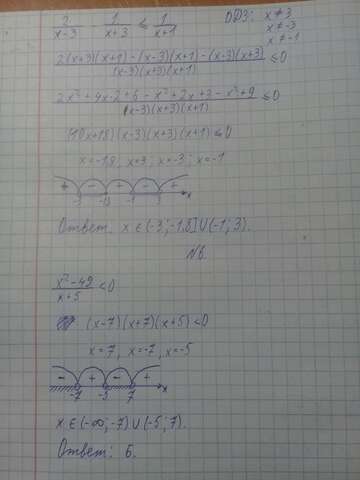 2/(x-3) - 1/(x+3) ≤ 1/(x+1) ОДЗ: x≠3
x≠-3
x≠-1
(2(x+3)(x+1)-(x-3)(x+1)-(x-3)(x+3))/((x-3)(x+3)(x+1)) ≤0
(10x+18)(x-3)(x+3)(x+1)≤0
x=-1,8, x=3; x=-3; x=-1
+ - + - +
-3 -1,8 -1 3 x
Ответ: x ∈ (-3; -1,8] ∪ (-1; 3).
№6.
(x²-49)/(x+5) <0
(x-7)(x+7)(x+5)<0
x=7, x=-7, x=-5
- + - +
-7 -5 7 x
x ∈ (-∞; -7) ∪ (-5; 7).
Ответ: 6.